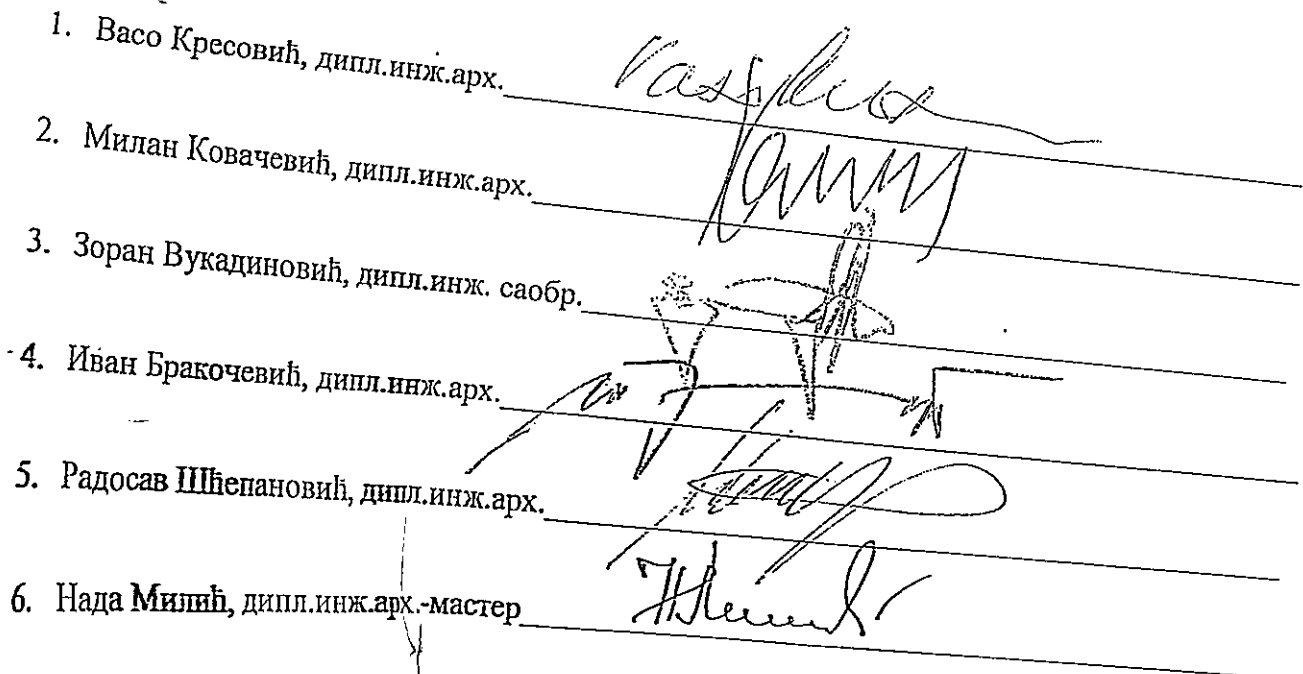 1. Васо Кресовић, дипл.инж.арх.
2. Милан Ковачевић, дипл.инж.арх.
3. Зоран Вукадиновић, дипл.инж. саобр.
4. Иван Бракочевић, дипл.инж.арх.
5. Радосав Шћепановић, дипл.инж.арх.
6. Нада Милић, дипл.инж.арх.-мастер